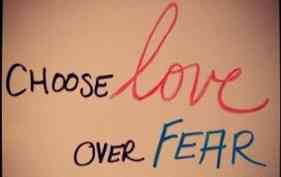 CHOOSE love
OVER FEAR